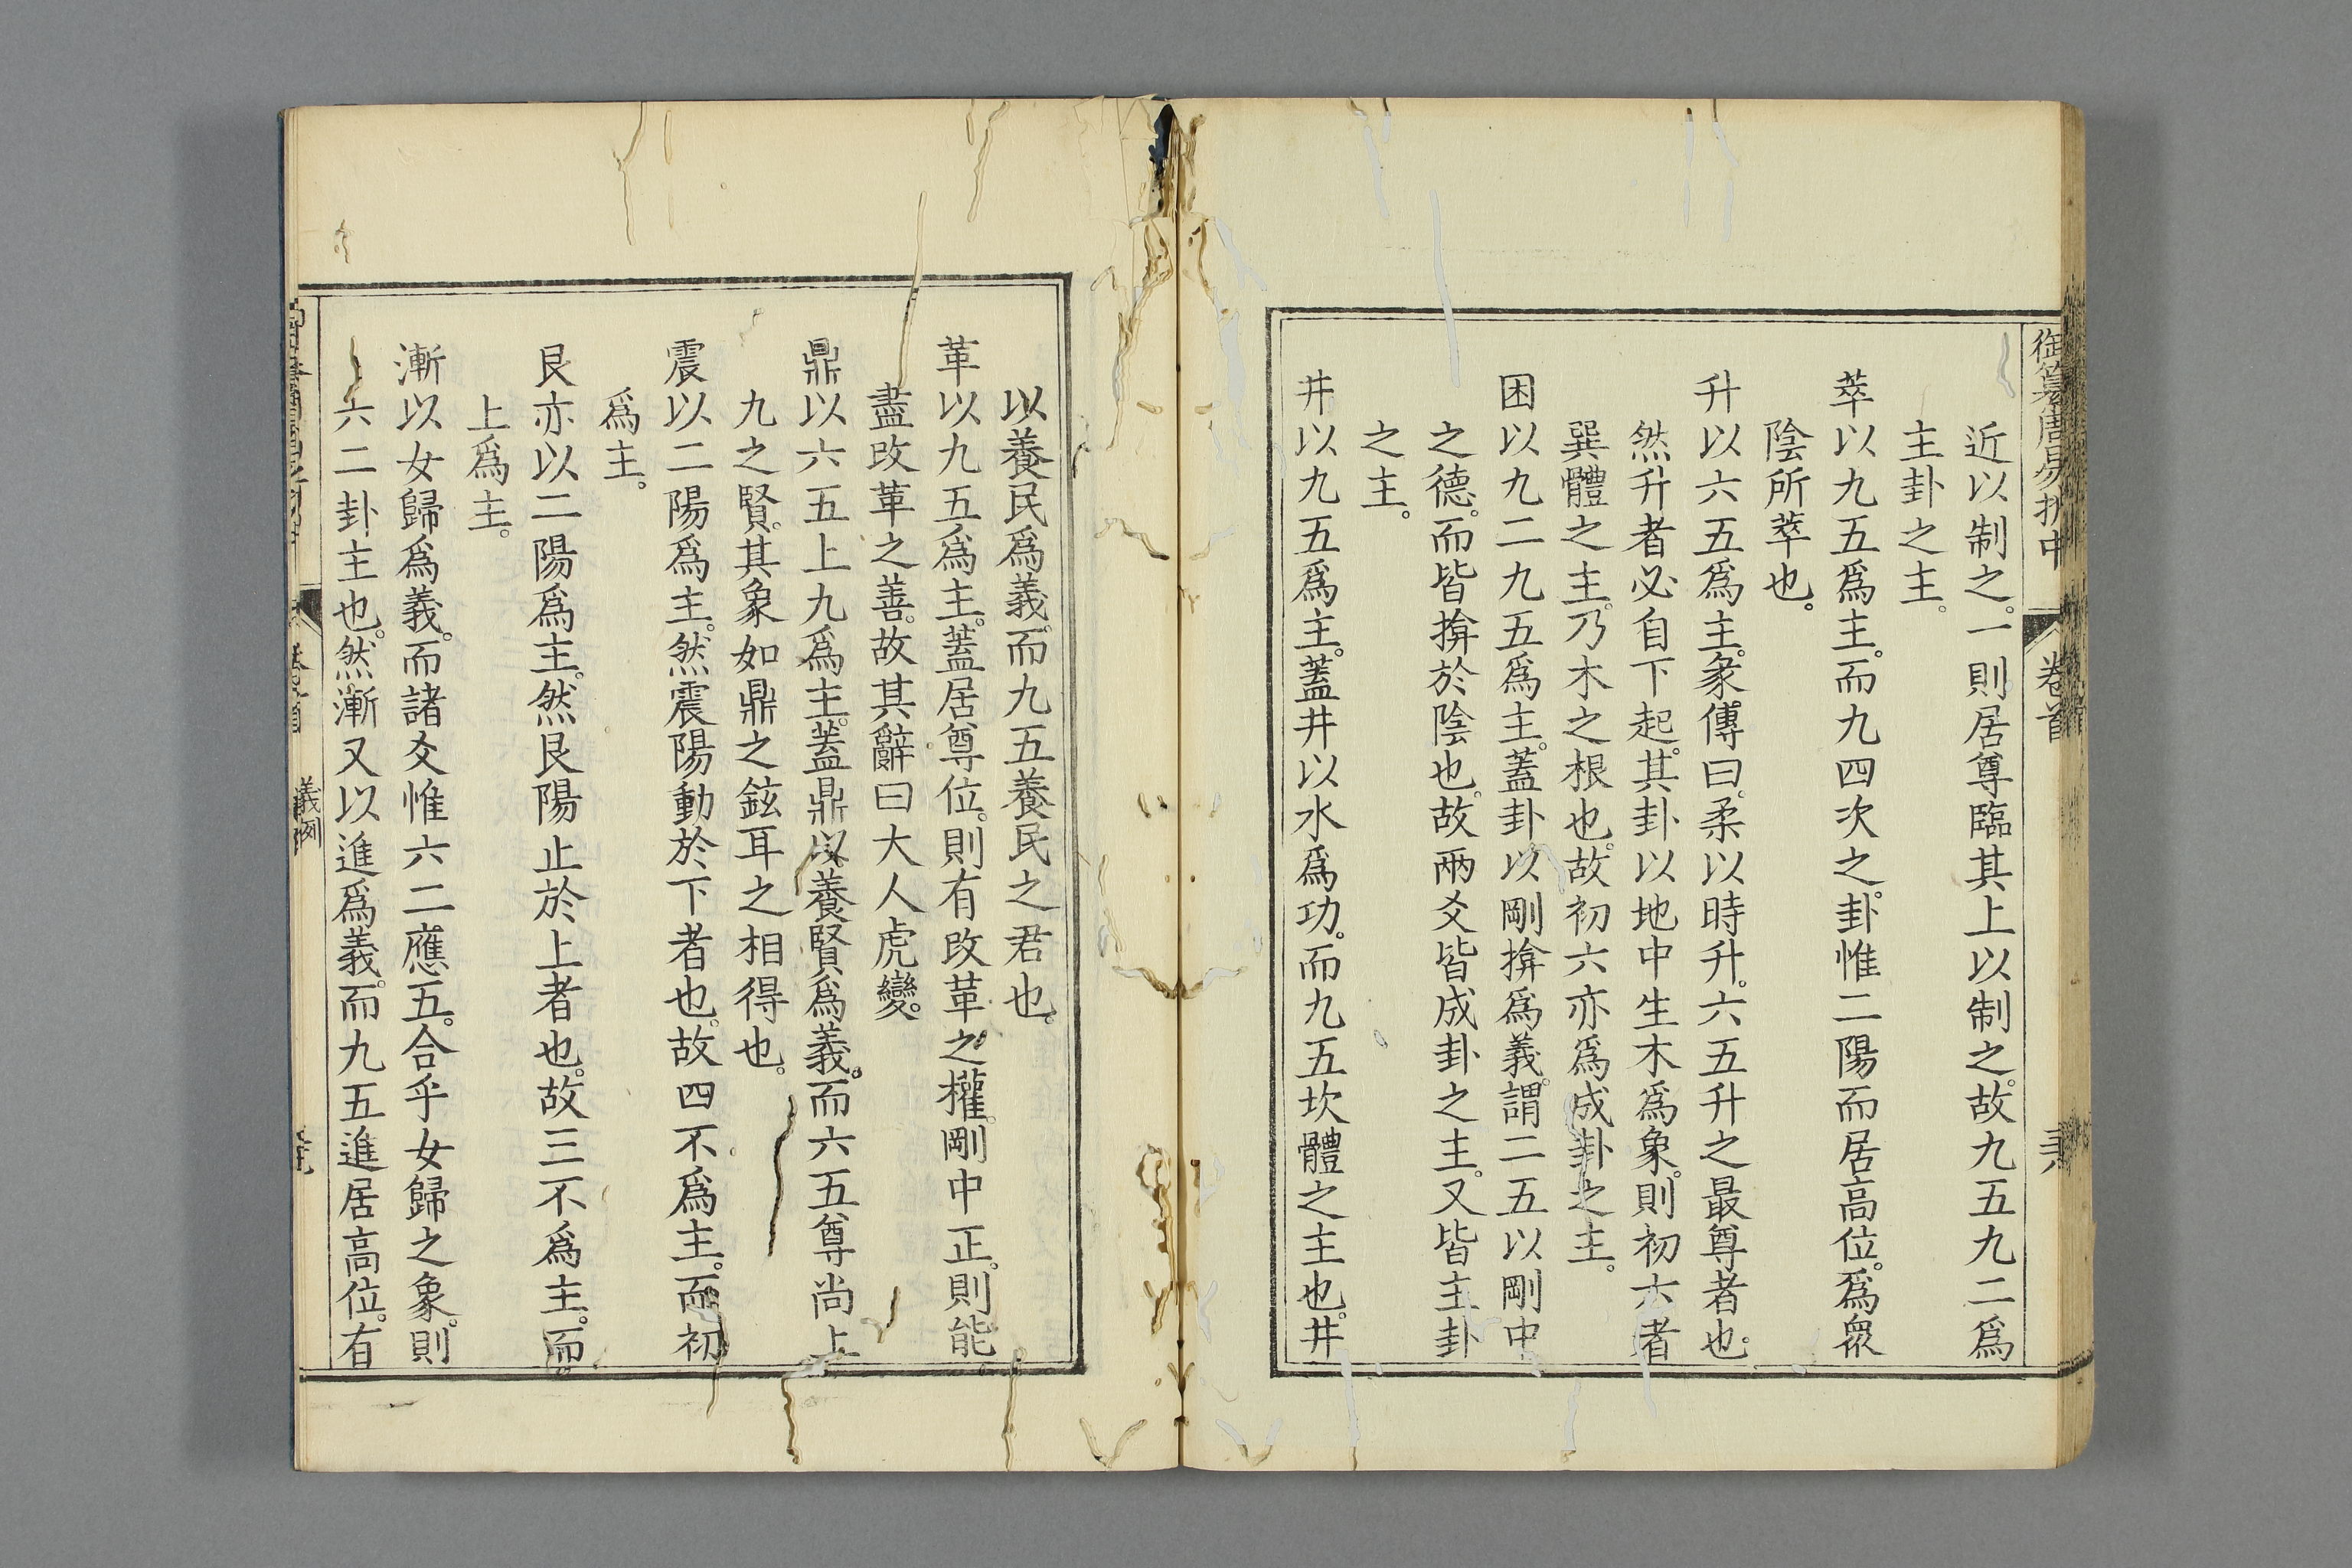 御纂周易折中
卷首
近以制之。一則居尊臨其上以制之。故九五九二爲
主卦之主。
萃以九五爲主。而九四次之。卦惟二陽而居高位。爲衆
陰所萃也。
升以六五爲主。彖傳曰。柔以時升。六五升之最尊者也。
然升者必自下起。其卦以地中生木爲象。則初六者
巽體之主。乃木之根也。故初六亦爲成卦之主。
困以九二九五爲主。蓋卦以剛揜爲義。謂二五以剛中
之德。而皆揜於陰也。故兩爻皆成卦之主。又皆主卦
之主。
井以九五爲主。蓋井以水爲功。而九五坎體之主也。井
以養民爲義。而九五養民之君也。
革以九五爲主。蓋居尊位。則有改革之權。剛中正。則能
盡改革之善。故其辭曰大人虎變。
鼎以六五上九爲主。蓋鼎以養賢爲義。而六五尊尚上
九之賢。其象如鼎之鉉耳之相得也。
震以二陽爲主。然震陽動於下者也。故四不爲主。而初
爲主。
艮亦以二陽爲主。然艮陽止於上者也。故三不爲主。而
上爲主。
漸以女歸爲義。而諸爻惟六二應五。合乎女歸之象。則
六二卦主也。然漸又以進爲義。而九五進居高位。有
義例